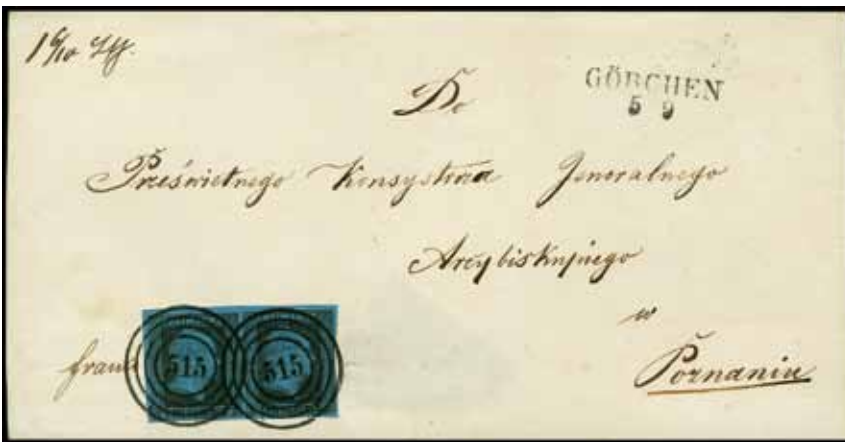 1 6/10
GÖRCHEN
5 9
Do
Prześwietnego Konsystorza Jeneralnego
Arcybiskupiego
w
Poznaniu
franco
515 515